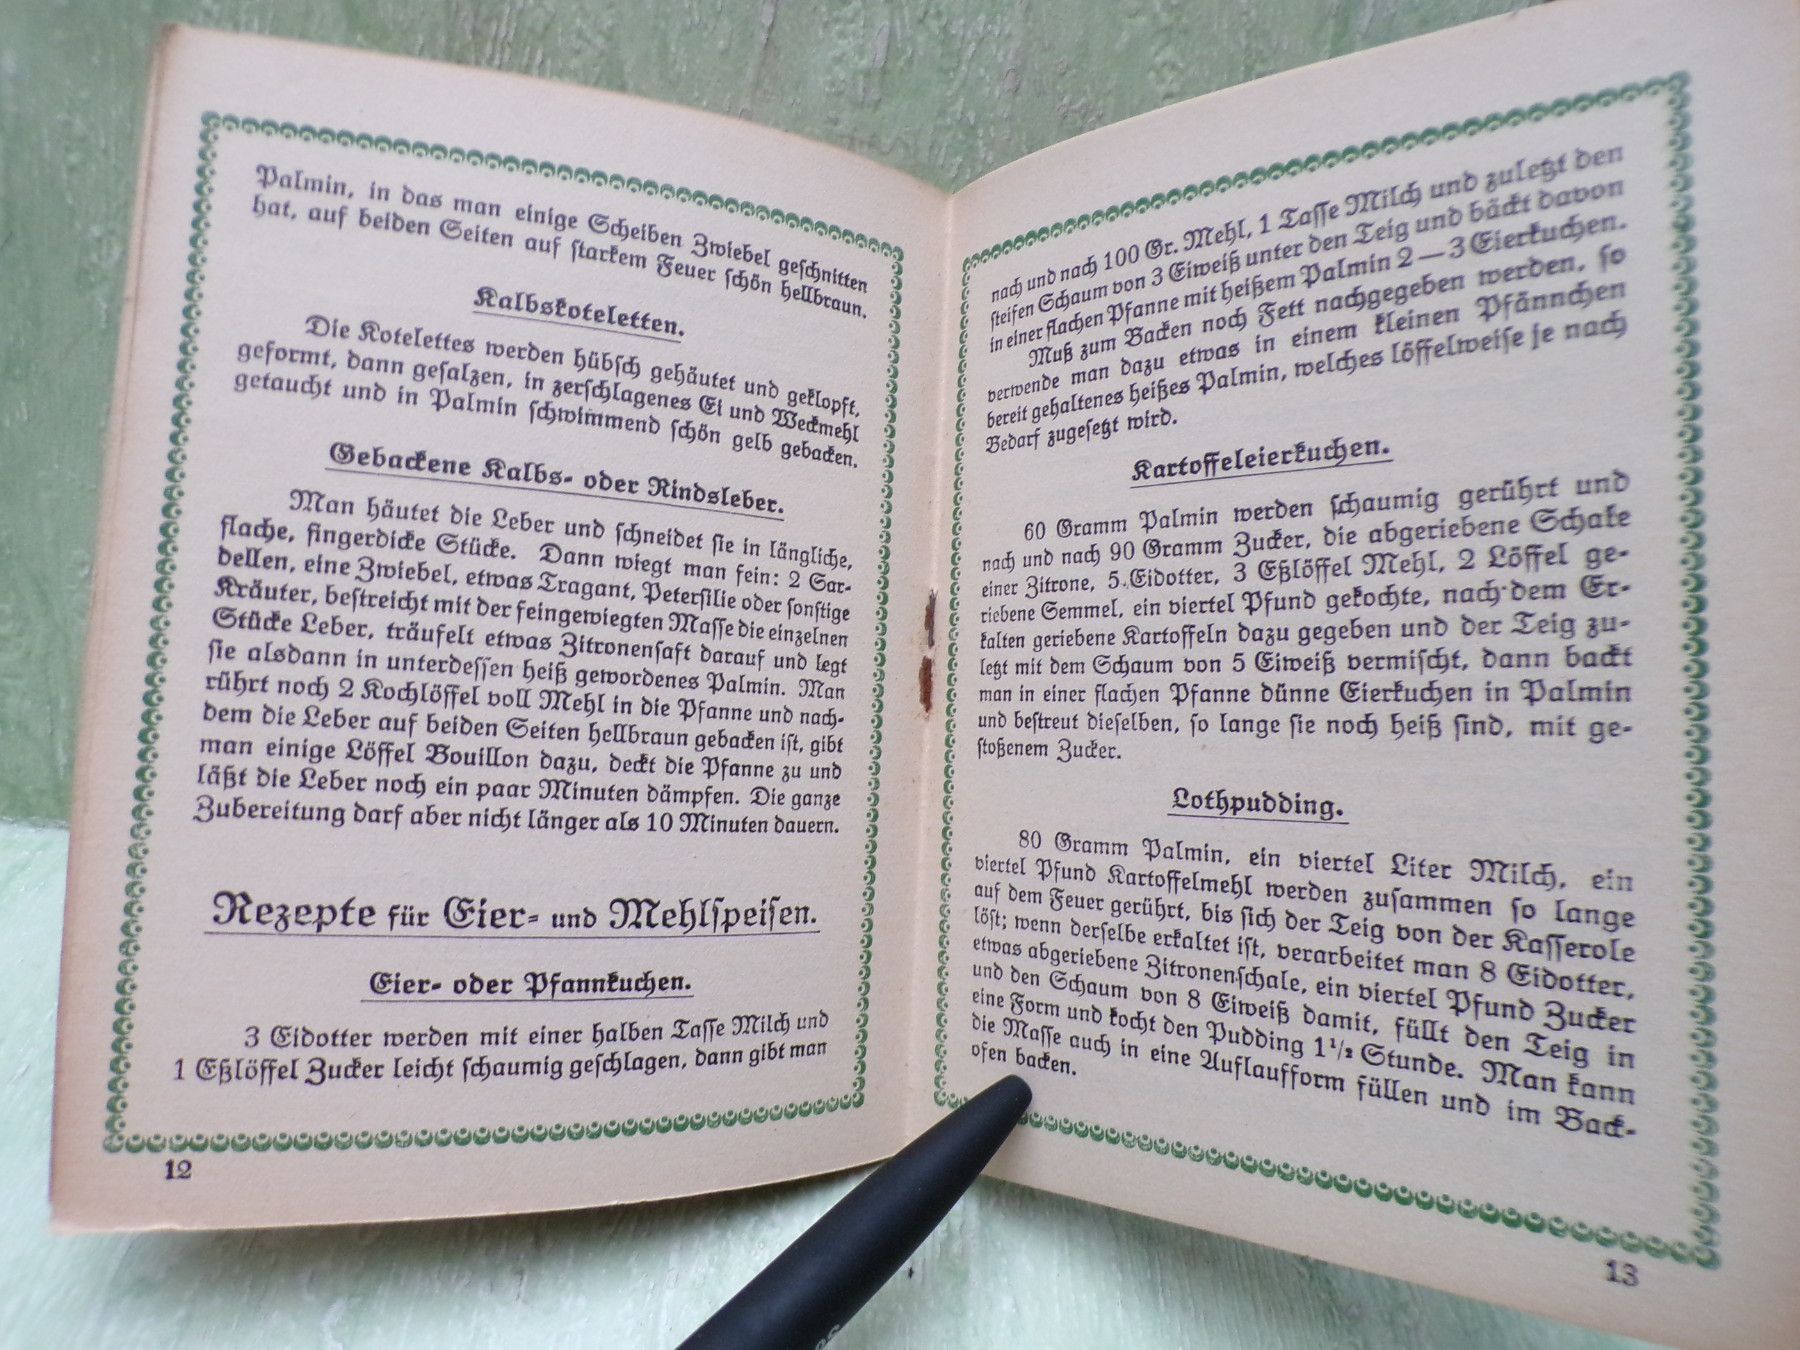 Palmin, in das man einige Scheiben Zwiebel geschnitten
hat, auf beiden Seiten auf starkem Feuer schön hellbraun.
Kalbskoteletten.
Die Kotelettes werden hübsch gehäutet und geklopft,
geformt, dann gesalzen, in zerschlagenes Ei und Weckmehl
getaucht und in Palmin schwimmend schön gelb gebacken.
Gebackene Kalbs- oder Rindsleber.
Man häutet die Leber und schneidet sie in längliche,
flache, fingerdicke Stücke. Dann wiegt man fein: 2 Sar-
dellen, eine Zwiebel, etwas Tragant, Petersilie oder sonstige
Kräuter, bestreicht mit der feingewiegten Masse die einzelnen
Stücke Leber, träufelt etwas Zitronensaft darauf und legt
sie alsdann in unterdessen heiß gewordenes Palmin. Man
rührt noch 2 Kochlöffel voll Mehl in die Pfanne und nach-
dem die Leber auf beiden Seiten hellbraun gebacken ist, gibt
man einige Löffel Bouillon dazu, deckt die Pfanne zu und
läßt die Leber noch ein paar Minuten dämpfen. Die ganze
Zubereitung darf aber nicht länger als 10 Minuten dauern.
Rezepte für Eier- und Mehlspeisen.
Eier- oder Pfannkuchen.
3 Eidotter werden mit einer halben Tasse Milch und
1 Eßlöffel Zucker leicht schaumig geschlagen, dann gibt man
12
nach und nach 100 Gr. Mehl, 1 Tasse Milch und zuletzt den
steifen Schaum von 3 Eiweiß unter den Teig und bäckt davon
in einer flachen Pfanne mit heißem Palmin 2—3 Eierkuchen.
Muß zum Backen noch Fett nachgegeben werden, so
verwende man dazu etwas in einem kleinen Pfännchen
bereit gehaltenes heißes Palmin, welches löffelweise je nach
Bedarf zugesetzt wird.
Kartoffeleierkuchen.
60 Gramm Palmin werden schaumig gerührt und
nach und nach 90 Gramm Zucker, die abgeriebene Schale
einer Zitrone, 5 Eidotter, 3 Eßlöffel Mehl, 2 Löffel ge-
riebene Semmel, ein viertel Pfund gekochte, nach dem Er-
kalten geriebene Kartoffeln dazu gegeben und der Teig zu-
letzt mit dem Schaum von 5 Eiweiß vermischt, dann backt
man in einer flachen Pfanne dünne Eierkuchen in Palmin
und bestreut dieselben, so lange sie noch heiß sind, mit ge-
stoßenem Zucker.
Lothpudding.
80 Gramm Palmin, ein viertel Liter Milch, ein
viertel Pfund Kartoffelmehl werden zusammen so lange
auf dem Feuer gerührt, bis sich der Teig von der Kasserole
löst; wenn derselbe erkaltet ist, verarbeitet man 8 Eidotter,
etwas abgeriebene Zitronenschale, ein viertel Pfund Zucker
und den Schaum von 8 Eiweiß damit, füllt den Teig in
eine Form und kocht den Pudding 1 1/2 Stunde. Man kann
die Masse auch in eine Auflaufform füllen und im Back-
ofen backen.
13